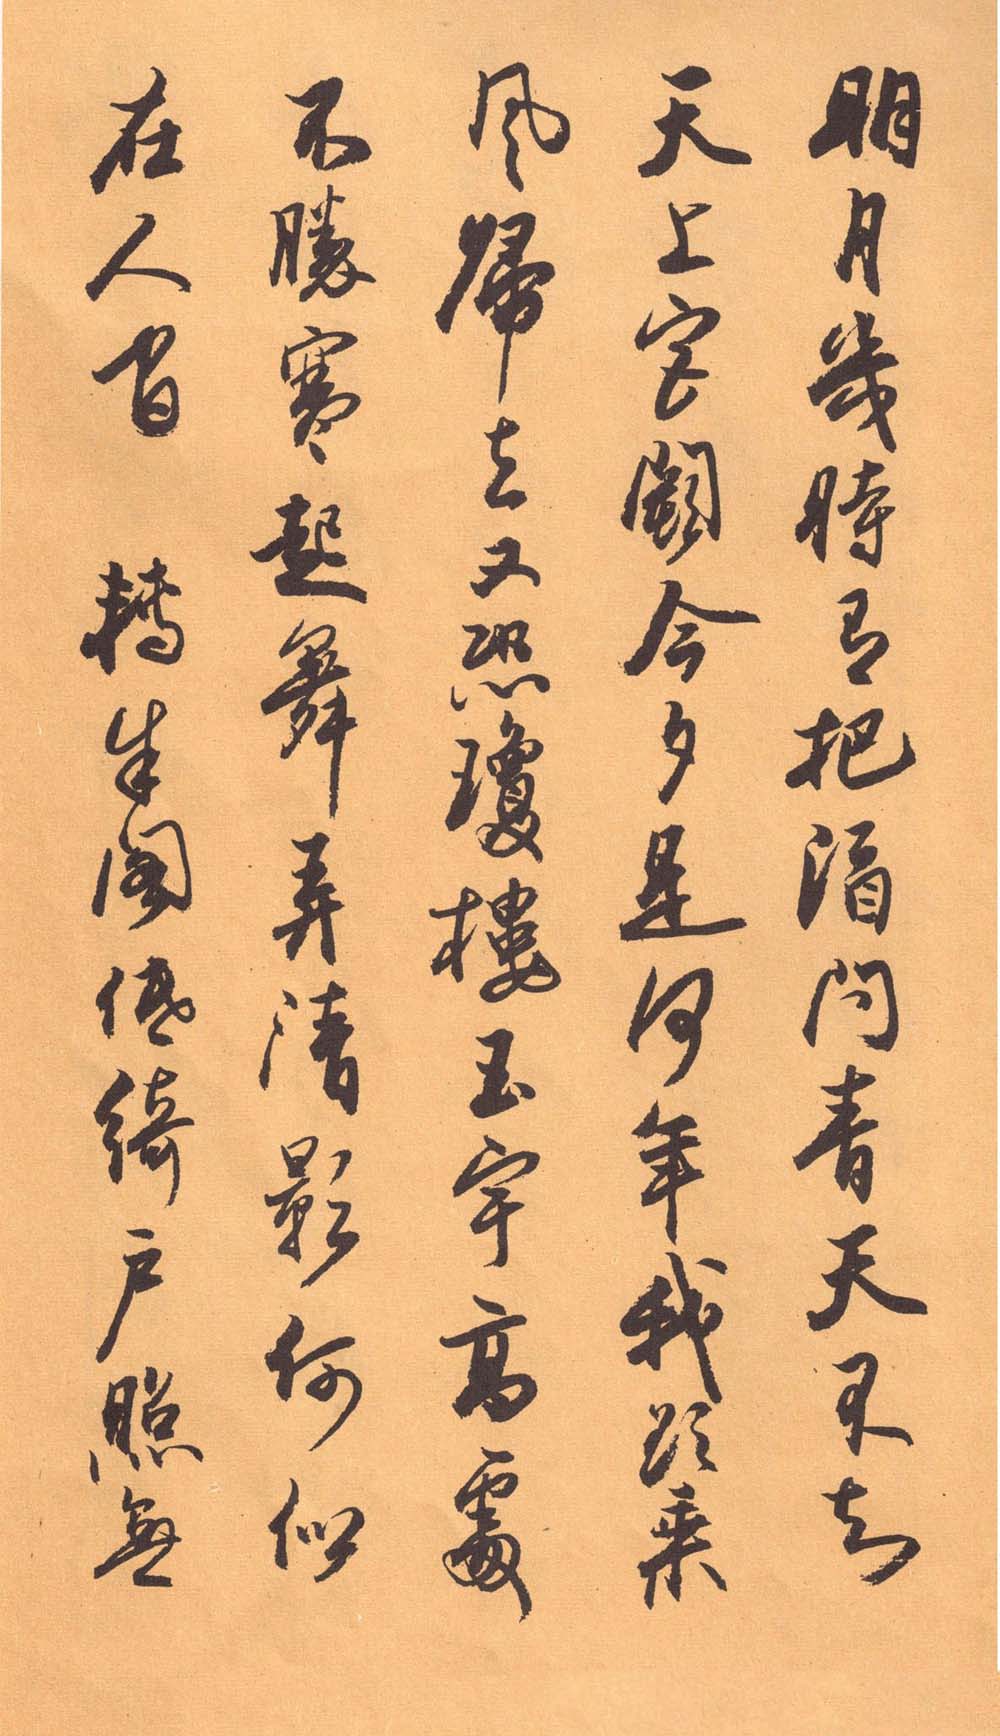 明月幾時有把酒問青天不知
天上宮闕今夕是何年我欲乘
風歸去又恐瓊樓玉宇高處
不勝寒起舞弄清影何似
在人間 轉朱閣低綺戶照無